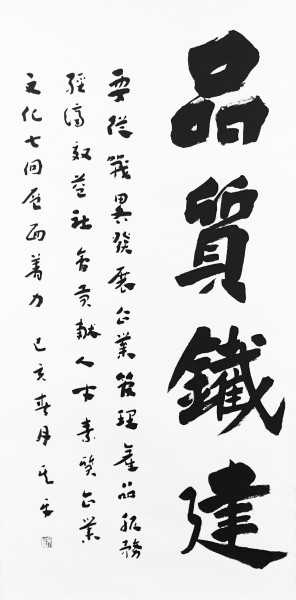 品質鐵建
要從戰略發展企業管理產品服務
經濟效益社會貢獻人才素質企業
文化七個層面著力 己亥春月